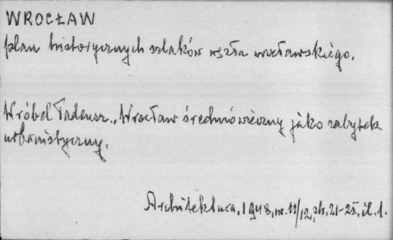 WROCŁAW
plan historycznych szlaków węzła wrocławskiego.
Wróbel Tadeusz., Wrocław średniowieczny jako zabytek
urbanistyczny.
Architektura, 1948, nr. 11/12, str. 21-25, il. 1.